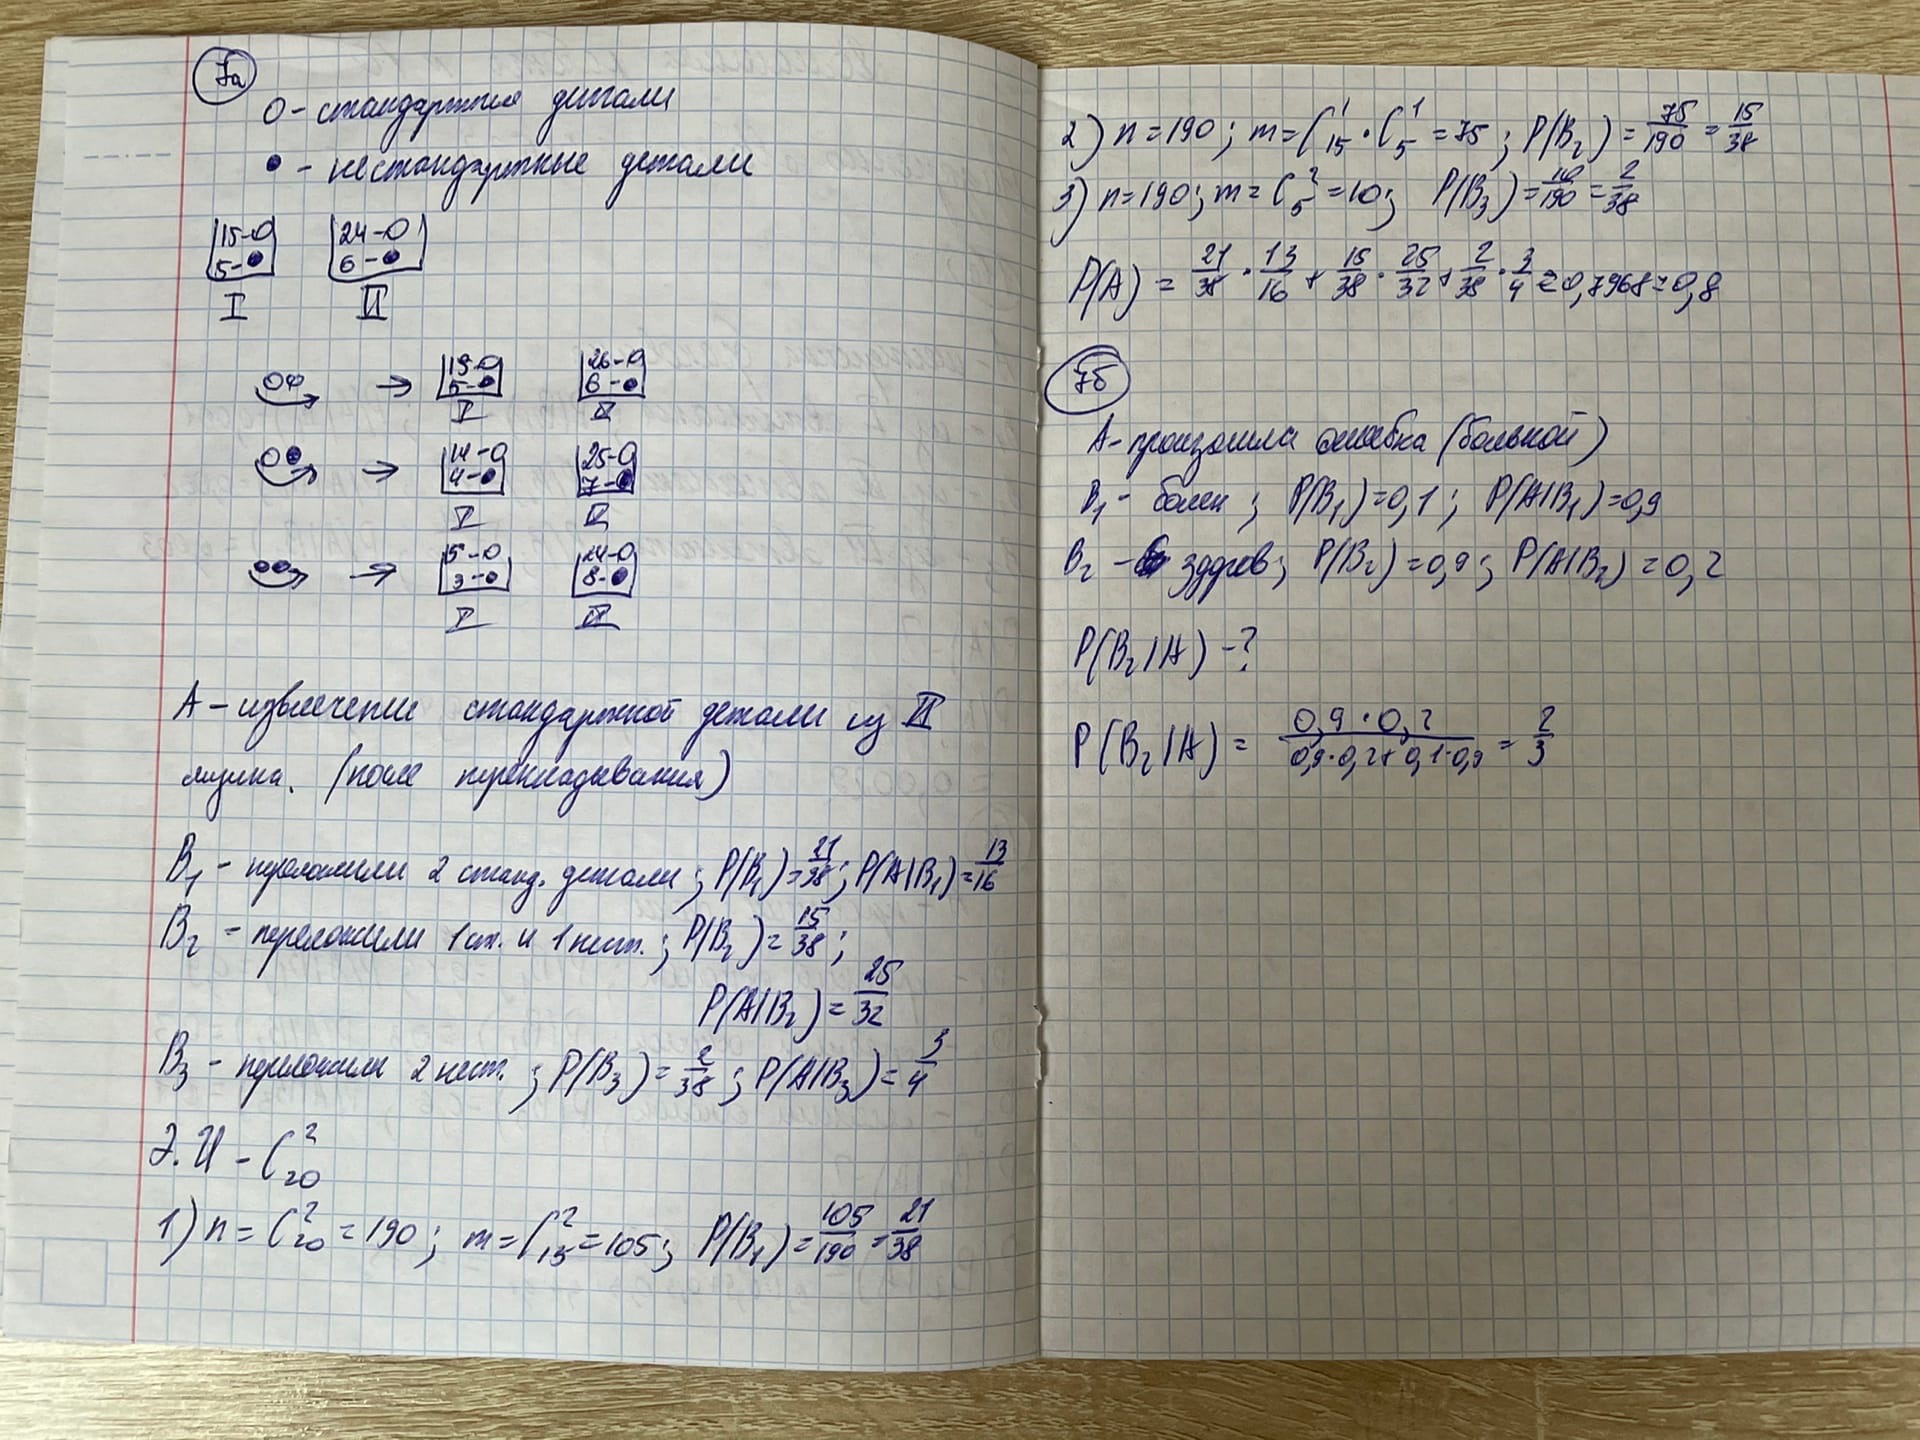 7а
О - стандартные детали
● - нестандартные детали
15-О 24-О
5-● 6-●
I II
О О → 13-О 26-О
5-● 6-●
I II
О ● → 14-О 25-О
4-● 7-●
I II
● ● → 5-О 24-О
3-● 8-●
I II
А - извлечение стандартной детали из II
ящика. (после перекладывания)
B₁ - переложили 2 станд. детали; P(B₁)=21/38; P(A|B₁)=13/16
B₂ - переложили 1 ст. и 1 нест.; P(B₂)=15/38;
P(A|B₂)=25/32
B₃ - переложили 2 нест.; P(B₃)=2/38; P(A|B₃)=3/4
Э.И - C²₂₀
1) n=C²₂₀=190; m=C²₁₅=105; P(B₁)=105/190=21/38
2) n=190; m=C¹₁₅·C¹₅=75; P(B₂)=75/190=15/38
3) n=190; m=C²₅=10; P(B₃)=10/190=2/38
P(A)=21/38·13/16+15/38·25/32+2/38·3/4≈0,7968≈0,8
7б
А - произошла ошибка (больной)
B₁ - болен; P(B₁)=0,1; P(A|B₁)=0,9
B₂ - здоров; P(B₂)=0,9; P(A|B₂)=0,2
P(B₂|A) -?
P(B₂|A)=0,9·0,2/0,9·0,2+0,1·0,9=2/3